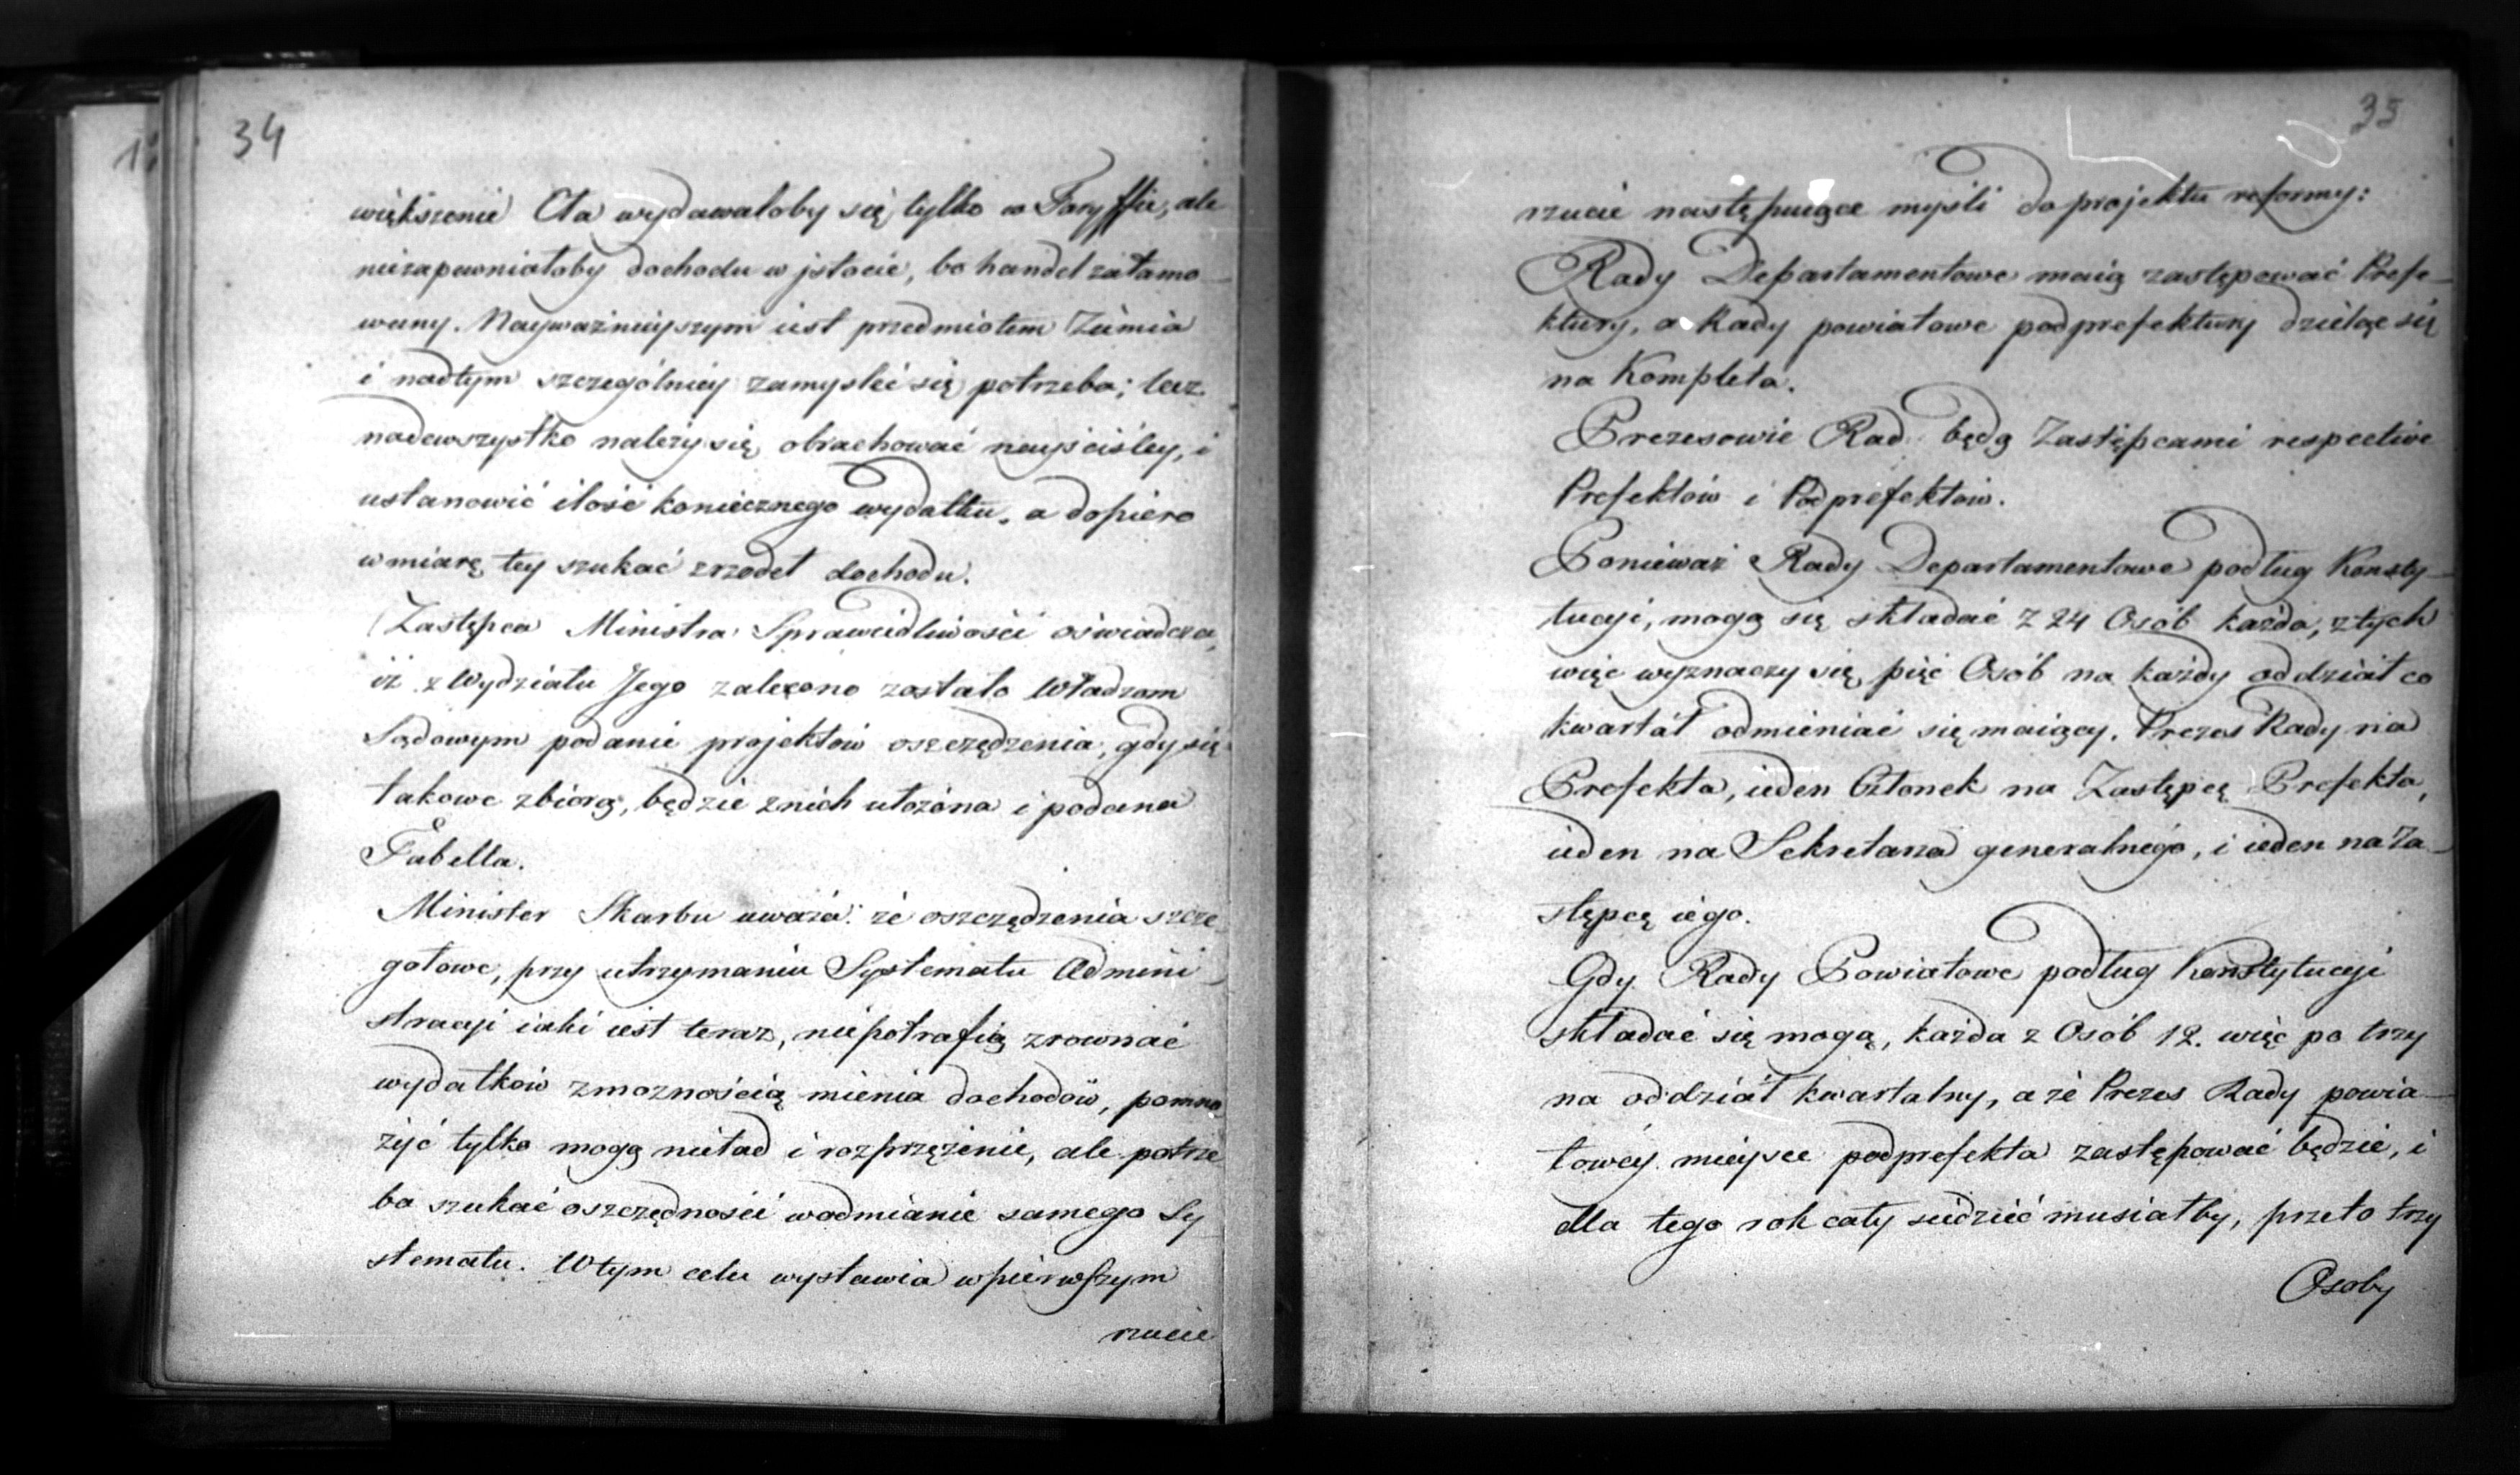 34
większenie Cła wydawałoby się tylko w Taryffie, ale
niezapewniałoby dochodu w jstocie, bo handel zatamo-
wany. Naywaźnieyszym iest przedmiotem Ziemia
i nadtym szczególniey zamyslić się potrzeba; lecz
nadewszystko należy się obrachować nayściśley, i
ustanowić ilość koniecznego wydatku, a dopiero
w miarę tey szukać zrzodeł dochodu.
Zastępca Ministra Sprawiedliwości oświadcza,
iż z Wydziału Jego zalecono zostało Władzom
Sądowym podanie projektów oszczędzenia, gdy się
takowe zbiorą, będzie znich ułożona i podana
Tabella.
Minister Skarbu uważa: że oszczędzenia szcze
gółowe, przy utrzymaniu Systematu Admini-
stracyi iaki iest teraz, niepotrafią zrownać
wydatków zmoznością mienia dochodów, pomno
żyć tylko mogą nieład i rozprzężenie, ale potrze
ba szukać oszczędności wodmianie samego Sy
stematu. W tym celu wystawia w pierwszym
rzucie
35
rzucie następuiące myśli do projektu reformy:
Rady Departamentowe maią zastępować Prefe-
ktury, a Rady powiatowe podprefektury dzieląc się
na Kompleta.
Prezesowie Rad będą Zastępcami respective
Prefektów i Podprefektów.
Ponieważ Rady Departamentowe podług Konsty-
tucyi, mogą się składać z 24 Osób każda, z tych
więc wyznaczy się pięć Osób na każdy oddział co
kwartał odmieniać się maiący. Prezes Rady na
Prefekta, ieden Członek na Zastępcę Prefekta,
ieden na Sekretarza generalnego, i ieden na Za-
stępcę iego.
Gdy Rady Powiatowe podług Konstytucyi
składać się mogą, każda z Osób 12. więc po trzy
na oddział kwartalny, a że Prezes Rady powia-
towéy mieysce podprefekta zastępować będzie, i
dla tego rok cały siedzieć musiałby, przeto trzy
Osoby